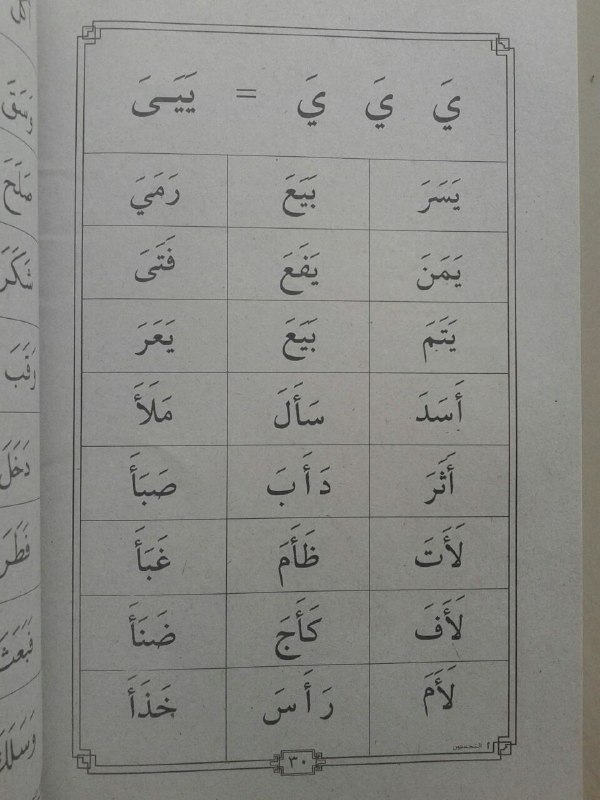 يَ يَ يَ = يَيَىَ
يَسَرَ بَيَعَ رَمَيَ
يَمَنَ يَفَعَ فَتَىَ
يَتَمَ بَيَعَ يَعَرَ
أَسَدَ سَأَلَ مَلَأَ
أَثَرَ دَأَبَ صَبَأَ
لَأَتَ ظَأَمَ غَبَأَ
لَأَفَ كَأَجَ ضَنَأَ
لَأَمَ رَأَسَ خَذَأَ
٣٠